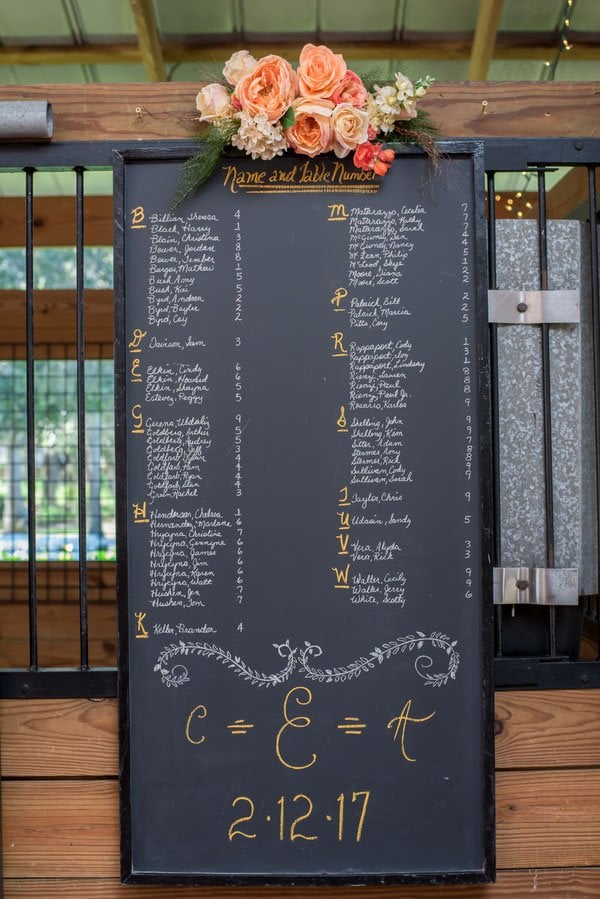 Name and Table Number
B
Billian, Theresa 4
Black, Harry 1
Blair, Christina 3
Bower, Jordan 8
Bower, Timber 8
Burger, Mathew 1
Bush, Amy 5
Bush, Kai 5
Byrd, Andrea 2
Byrd, Baylee 2
Byrd, Cay 2
D
Davison, Sam 3
E
Elkin, Cindy 6
Elkin, Howard 6
Elkin, Shayna 5
Estevez, Peggy 5
G
Gerena, 9
Goldberg, Arthur 5
Goldberg, Audrey 5
Goldberg, Jeff 3
Goldfarb, 4
Goldfarb, Pam 4
Goldfarb, Ryan 4
Goldfarb, Sam 4
Green, Rachel 3
H
Henderson, Chelsea 1
Hernandez, Marlane 6
Hrycyna, Christine 7
Hrycyna, Gennyne 6
Hrycyna, James 6
Hrycyna, Jim 6
Hrycyna, Karen 6
Hrycyna, Watt 6
Hushen, Jen 7
Hushen, Tom 7
K
Keller, Brandon 4
M
Matarazzo, Cecelia 7
Matarazzo, Kathy 7
Matarazzo, Sarah 7
McGurney, Dan 4
McGurney, Nancy 4
McLean, Philip 5
McLeod, Skye 1
Moore, Diana 2
Moore, Scott 2
P
Polaick, Bill 2
Polaick, Marcia 2
Pitts, Cory 5
R
Rappaport, Cory 1
Rappaport, Joy 3
Rappaport, Lindsey 1
Rieny, Lauren 8
Rieny, Paul 8
Rieny, Paul Jr. 8
Rosario, Karlos 9
S
Shelling, John 9
Shelling, Kim 9
Sitter, Adam 7
Stermer, Sony 8
Stermer, Rick 8
Sullivan, Cody 9
Sullivan, Sarah 9
T
Taylor, Chris 9
U
Udasin, Sandy 5
V
Vera, Alyda 3
Vera, Rich 3
W
Waller, Cecily 9
Waller, Jerry 9
White, Scotty 6
C = E = A
2·12·17